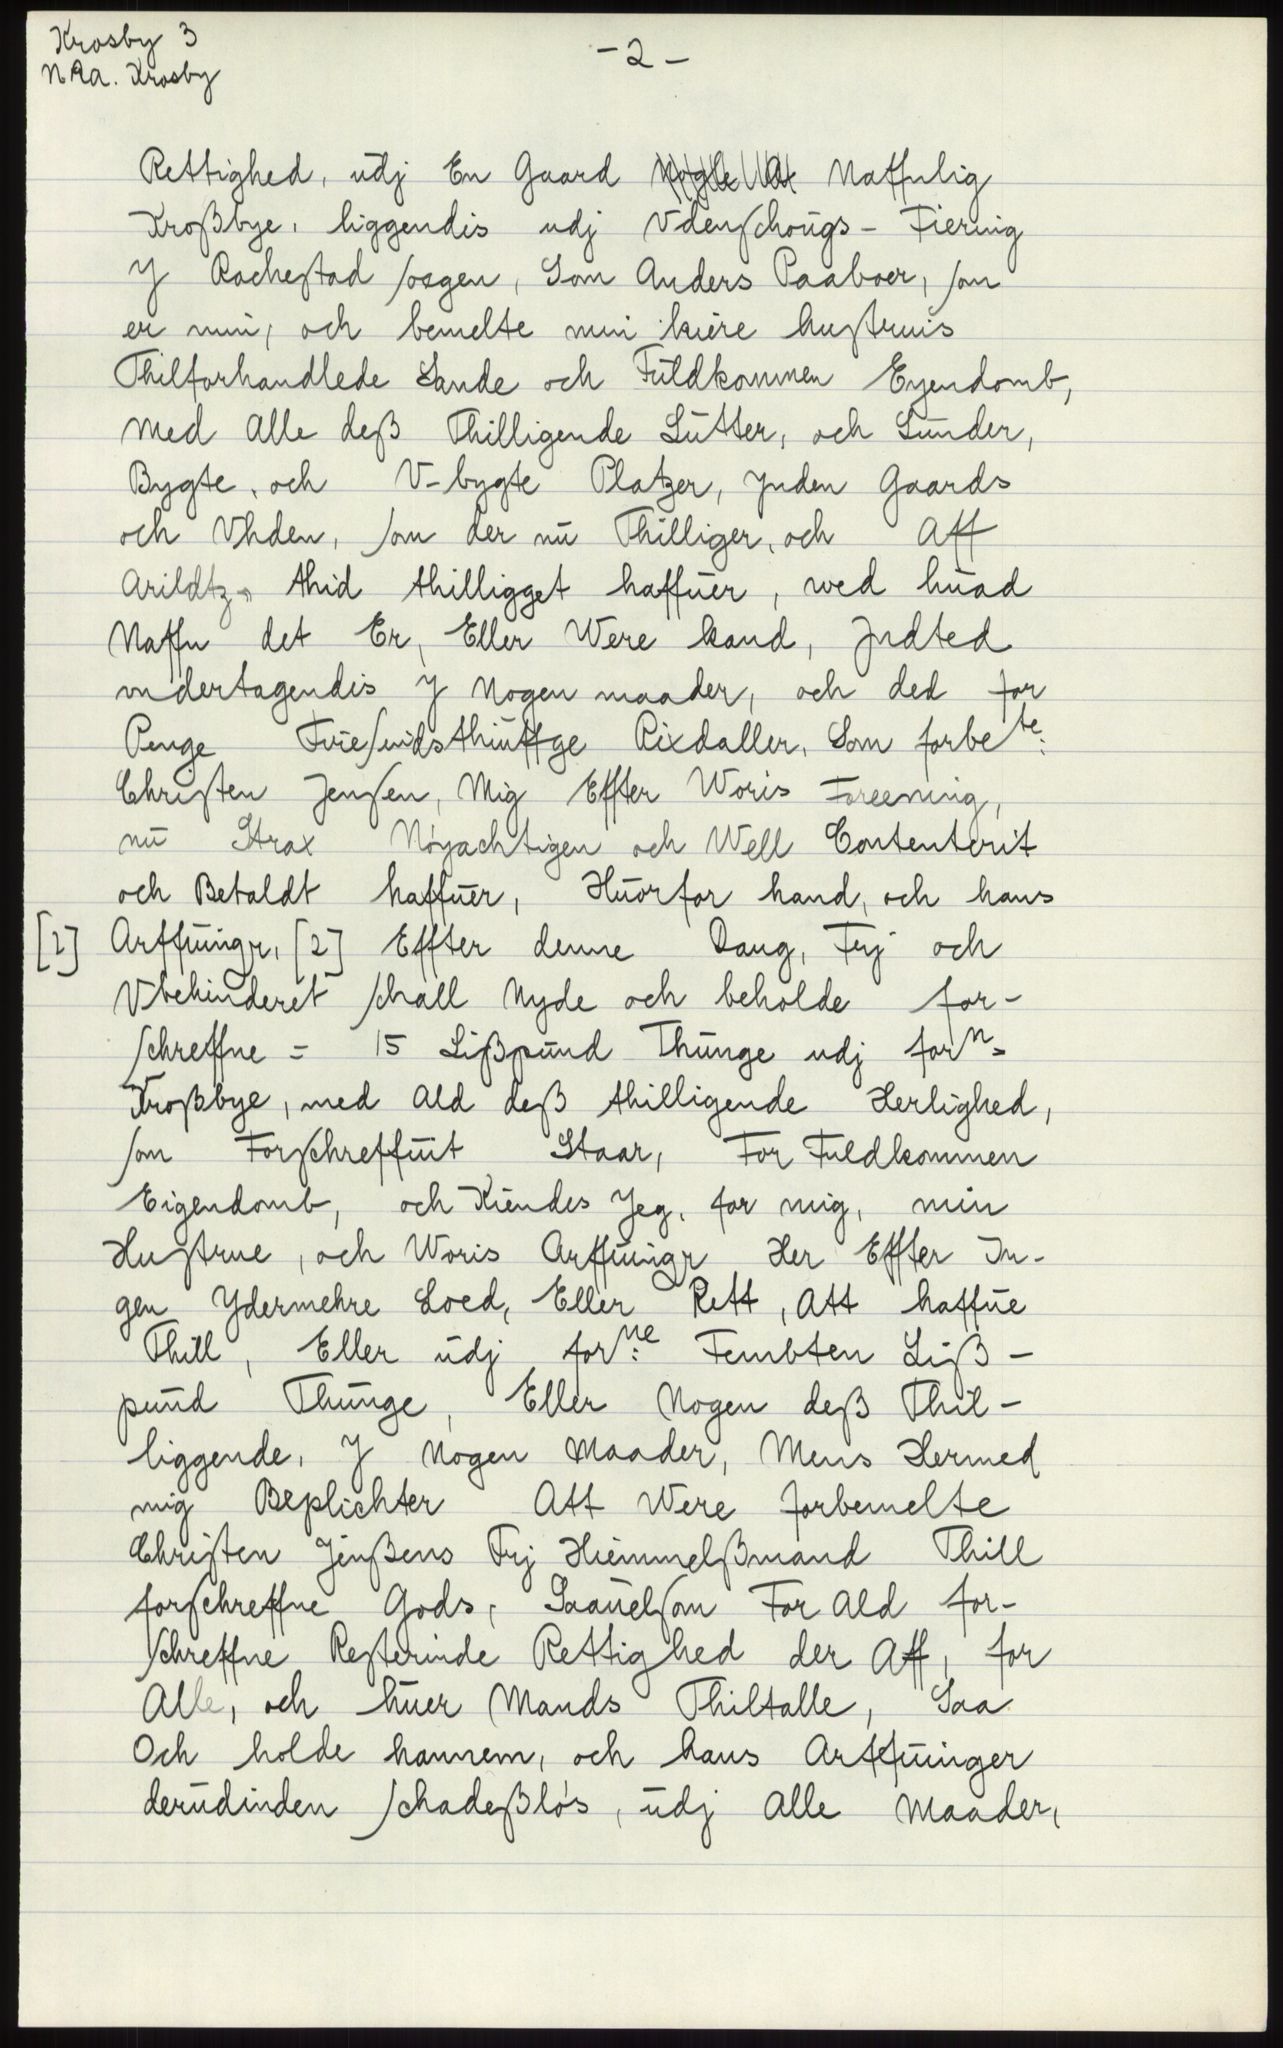 Krosby 3
NRA. Krosby
- 2 -
Rettighed, udj En Gaard Naffnlig
Kroßbye, liggendis udj Vdenschougs - Fiering
Y Rachestad sogen, Som Anders Paaboer, som
er min, och bemelte min kiere hustruis
Thilforhandlede Sande och Fuldkommen Eyendomb,
med Alle deß Thilligende Lutter, och Lunder,
Bygte, och V-bygte Platzer, Jnden Gaards
och Vhden, som der nu Thilliger, och Aff
Arildtz thid thilligget haffuer, wed huad
Naffn det Er, Eller Were kand, Jndted
undertagendis Y Nogen maader, och ded for
Penge Firesindsthiuffge Rixdaller, Som forbete:
Christen Jensen, Mig Effter Woris Foreening,
nu Strax Nöyachtigen och Well Contenterit
och Betaldt haffuer, Huorfor hand, och hans
[2] Arffuingr, [2] Effter denne Daug, Frj och
Vbehinderet schall Nyde och beholde for-
schreffne = 15 Lißpund Thunge udj forn=
Kroßbye, med Ald deß thilligende Herlighed,
som Forschreffuit Staar, For Fuldkommen
Eigendomb, och Kiendes Jeg, for mig, min
Hustrue, och Woris Arffuingr Her Effter In-
gen Ydermehre Loed, Eller Rett, Att haffue
Thill, Eller udj forne: Fembten Liß-
pund Thunge, Eller Nogen deß Thil-
liggende, Y Nogen Maader, Mens Hermed
mig Beplichter Att Were forbemelte
Christen Jenßens Frj Hiemmelßmand Thill
forschreffne Gods, Saauelsom For Ald for-
schreffne Resterinde Rettighed der Aff, for
Alle, och huer Mands Thiltalle, Saa
Och holde hannem, och hans Arffuinger
derudinden schadeßlös, udj Alle Maader,